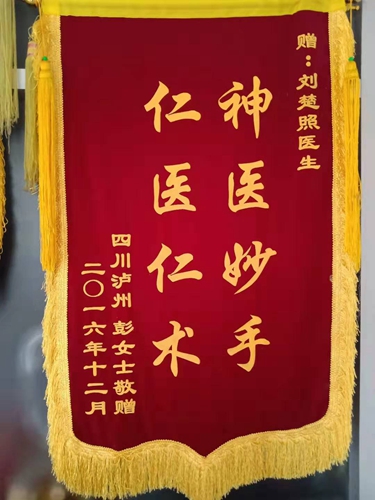 赠：刘楚照医生
神医妙手
仁医仁术
四川泸州 彭女士敬赠
二〇一六年十二月